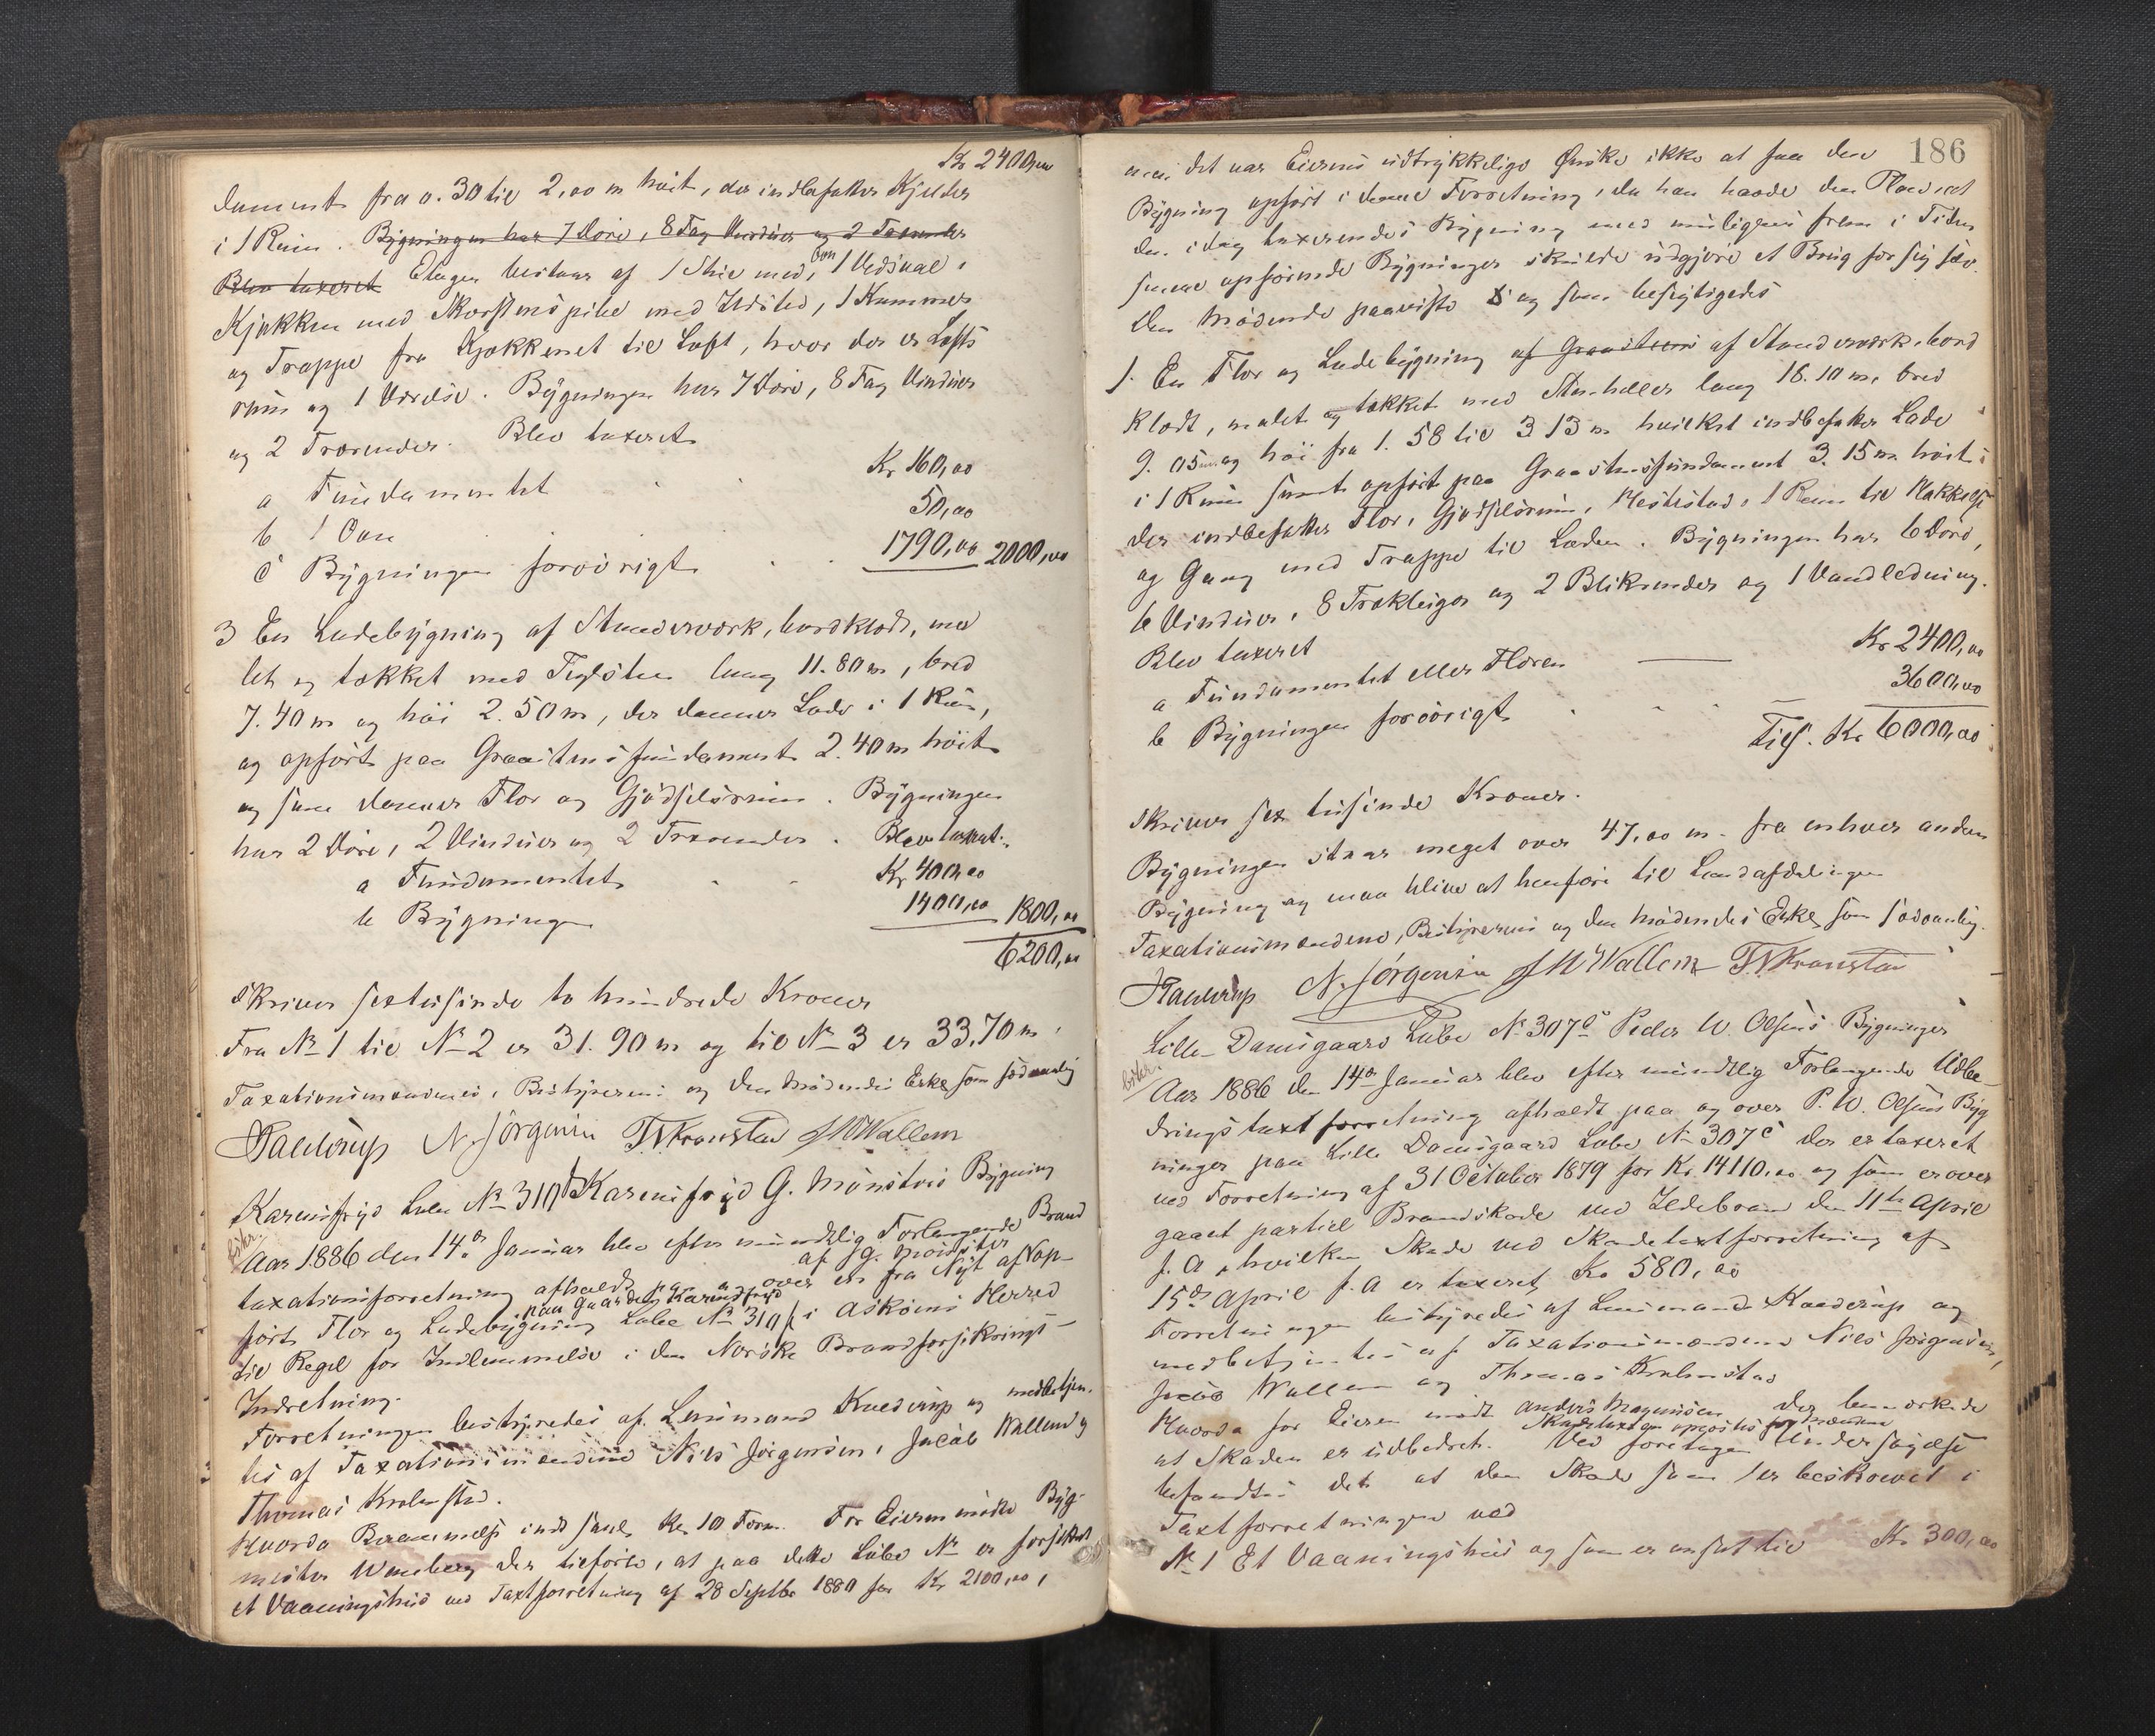 Kr 2400,00
dament fra 0.30 til 2,00 m høit, der indbefatter Kjelder
i 1 Rum. Bygningen har 7 Døre, 8 Fag Vinduer og 2 Trærender
Blev taxeret Etagen bestaar af 1 Stue med Ovn, 1 Vedskal,
Kjøkken med Skorstenspibe med Ildsted, 1 Kammer
og Trappe fra Kjøkkenet til Loft, hvor der er Lofts
rum og 1 Værelse. Bygningen har 7 Døre, 8 Fag Vinduer
og 2 Trærender. Blev taxeret
a Fundamentet Kr 160,00
b 1 Ovn 50,00
c Bygningen forøvrigt 1790,00 2000,00
3 En Ladebygning af Stenderværk, bordklædt, ma
let og tækket med Teglsten lang 11.80 m, bred
7.40 m og høi 2.50 m, der danner Lade i 1 Rum,
og opført paa Graastensfundament 2.40 m høit
og som danner Flor og Gjødselsrum. Bygningen
har 2 Døre, 2 Vinduer og 2 Trærender. Blev taxeret.
a Fundamentet Kr 400,00
b Bygningen 1400,00 1800,00
6200,00
skriver sextusinde to hundrede Kroner
Fra No 1 til No 2 er 31.90 m og til No 3 er 33,70 m.
Taxationsmændenes, Bestyrerens og den mødendes Eske som sædvanlig
Kaldrup N. Jørgensen T. Kronstad J M Wallem
Karensfryd Løbe No 310 f Karensfryd G. Mønsters Bygning
Aar 1886 den 14de Januar blev efter mundtlig Forlangende Brand
taxationsforretning afholdt paa og over en fra Nyt af G. Mønster op-
paa Gaarden Karensfryd
ført Flor og Ladebygning Løbe No 310 f i Askøens Herred
til Regel for Indlemmelse i den Norske Brandforsikrings-
Indretning.
Forretningen bestyredes af Lensmand Kaldrup og medbetjen-
tes af Taxationsmændene Nils Jørgensen, Jacob Wallem og
Thomas Kronstad.
Hvorda Berammelse indfandt Kl 10 Form. For Eieren mødte Byg-
mester Wineberg der tilførte, at paa dette Løbe No er forsikret
et Vaaningshus ved Taxtforretning af 28 Septbr 1880 for Kr 2100,00,
186
men det var Eierens udtrykkelige Ønske ikke at faa den
Bygning opført i denne Forretning, da han havde den Plan at
den idag taxerendes Bygning med muligens frem i Tiden
senere opførende Bygninger skulde udgjøre et Brug for sig selv.
Den mødende paaviste og som besigtigedes
1. En Flor og Ladebygning af Graasteens af Stenderværk, bord
klædt, malet og tækket med Stenheller lang 16.10 m, bred
9.05 m og høi fra 1.58 til 3 13 m hvilket indbefatter Lade
i 1 Rum samt opført paa Graastensfundament 3.15 m høit
der indbefatter Flor, Gjødselsrum, Hestestad, 1 Rum til Hakkelse
og Gang med Trappe til Laden. Bygningen har 6 Døre,
6 Vinduer, 8 Trækluger og 2 Blikrender og 1 Vandledning.
Blev taxeret
a Fundamentet eller Floren Kr 2400,00
b Bygningen forøvrigt 3600,00
Tils. Kr 6000,00
skriver sex tusinde Kroner.
Bygningen staar meget over 47,00 m. fra enhver anden
Bygning og maa blive at henføre til Landafdelingen
Taxationsmændene, Bestyrerens og den mødendes Eske som sædvanlig.
Kaldrup N. Jørgensen J M Wallem T. Kronstad
Lille Damsgaard Løbe No 307 c Peder W. Olsens Bygninger
Aar 1886 den 14de Januar blev efter mundtlig Forlangende Udbe-
drings taxtforretning afholdt paa og over P. W. Olsens Byg
ninger paa Lille Damsgaard Løbe No 307 c der er taxeret
ved Forretning af 31 October 1879 for Kr. 14110.00 og som er over
gaaet partiel Brandskade ved Ildebrand den 11te April
f. A., hvilken Skade ved Skadetaxtforretning af
15de April f. A er taxeret Kr 580,00
Forretningen bestyredes af Lensmand Kaldrup og
medbetjentes af Taxationsmændene Nils Jørgensen,
Jacob Wallem og Thomas Kronstad
Hvorda for Eieren mødte Anders Magnusen der bemærkede
at Skaden er udbedret. Ved foretagen Undersøgelse
befandtes det at den Skade som er beskrevet i
Taxtforretningen ved
No 1 Et Vaaningshus og som er ansat til Kr 300,00